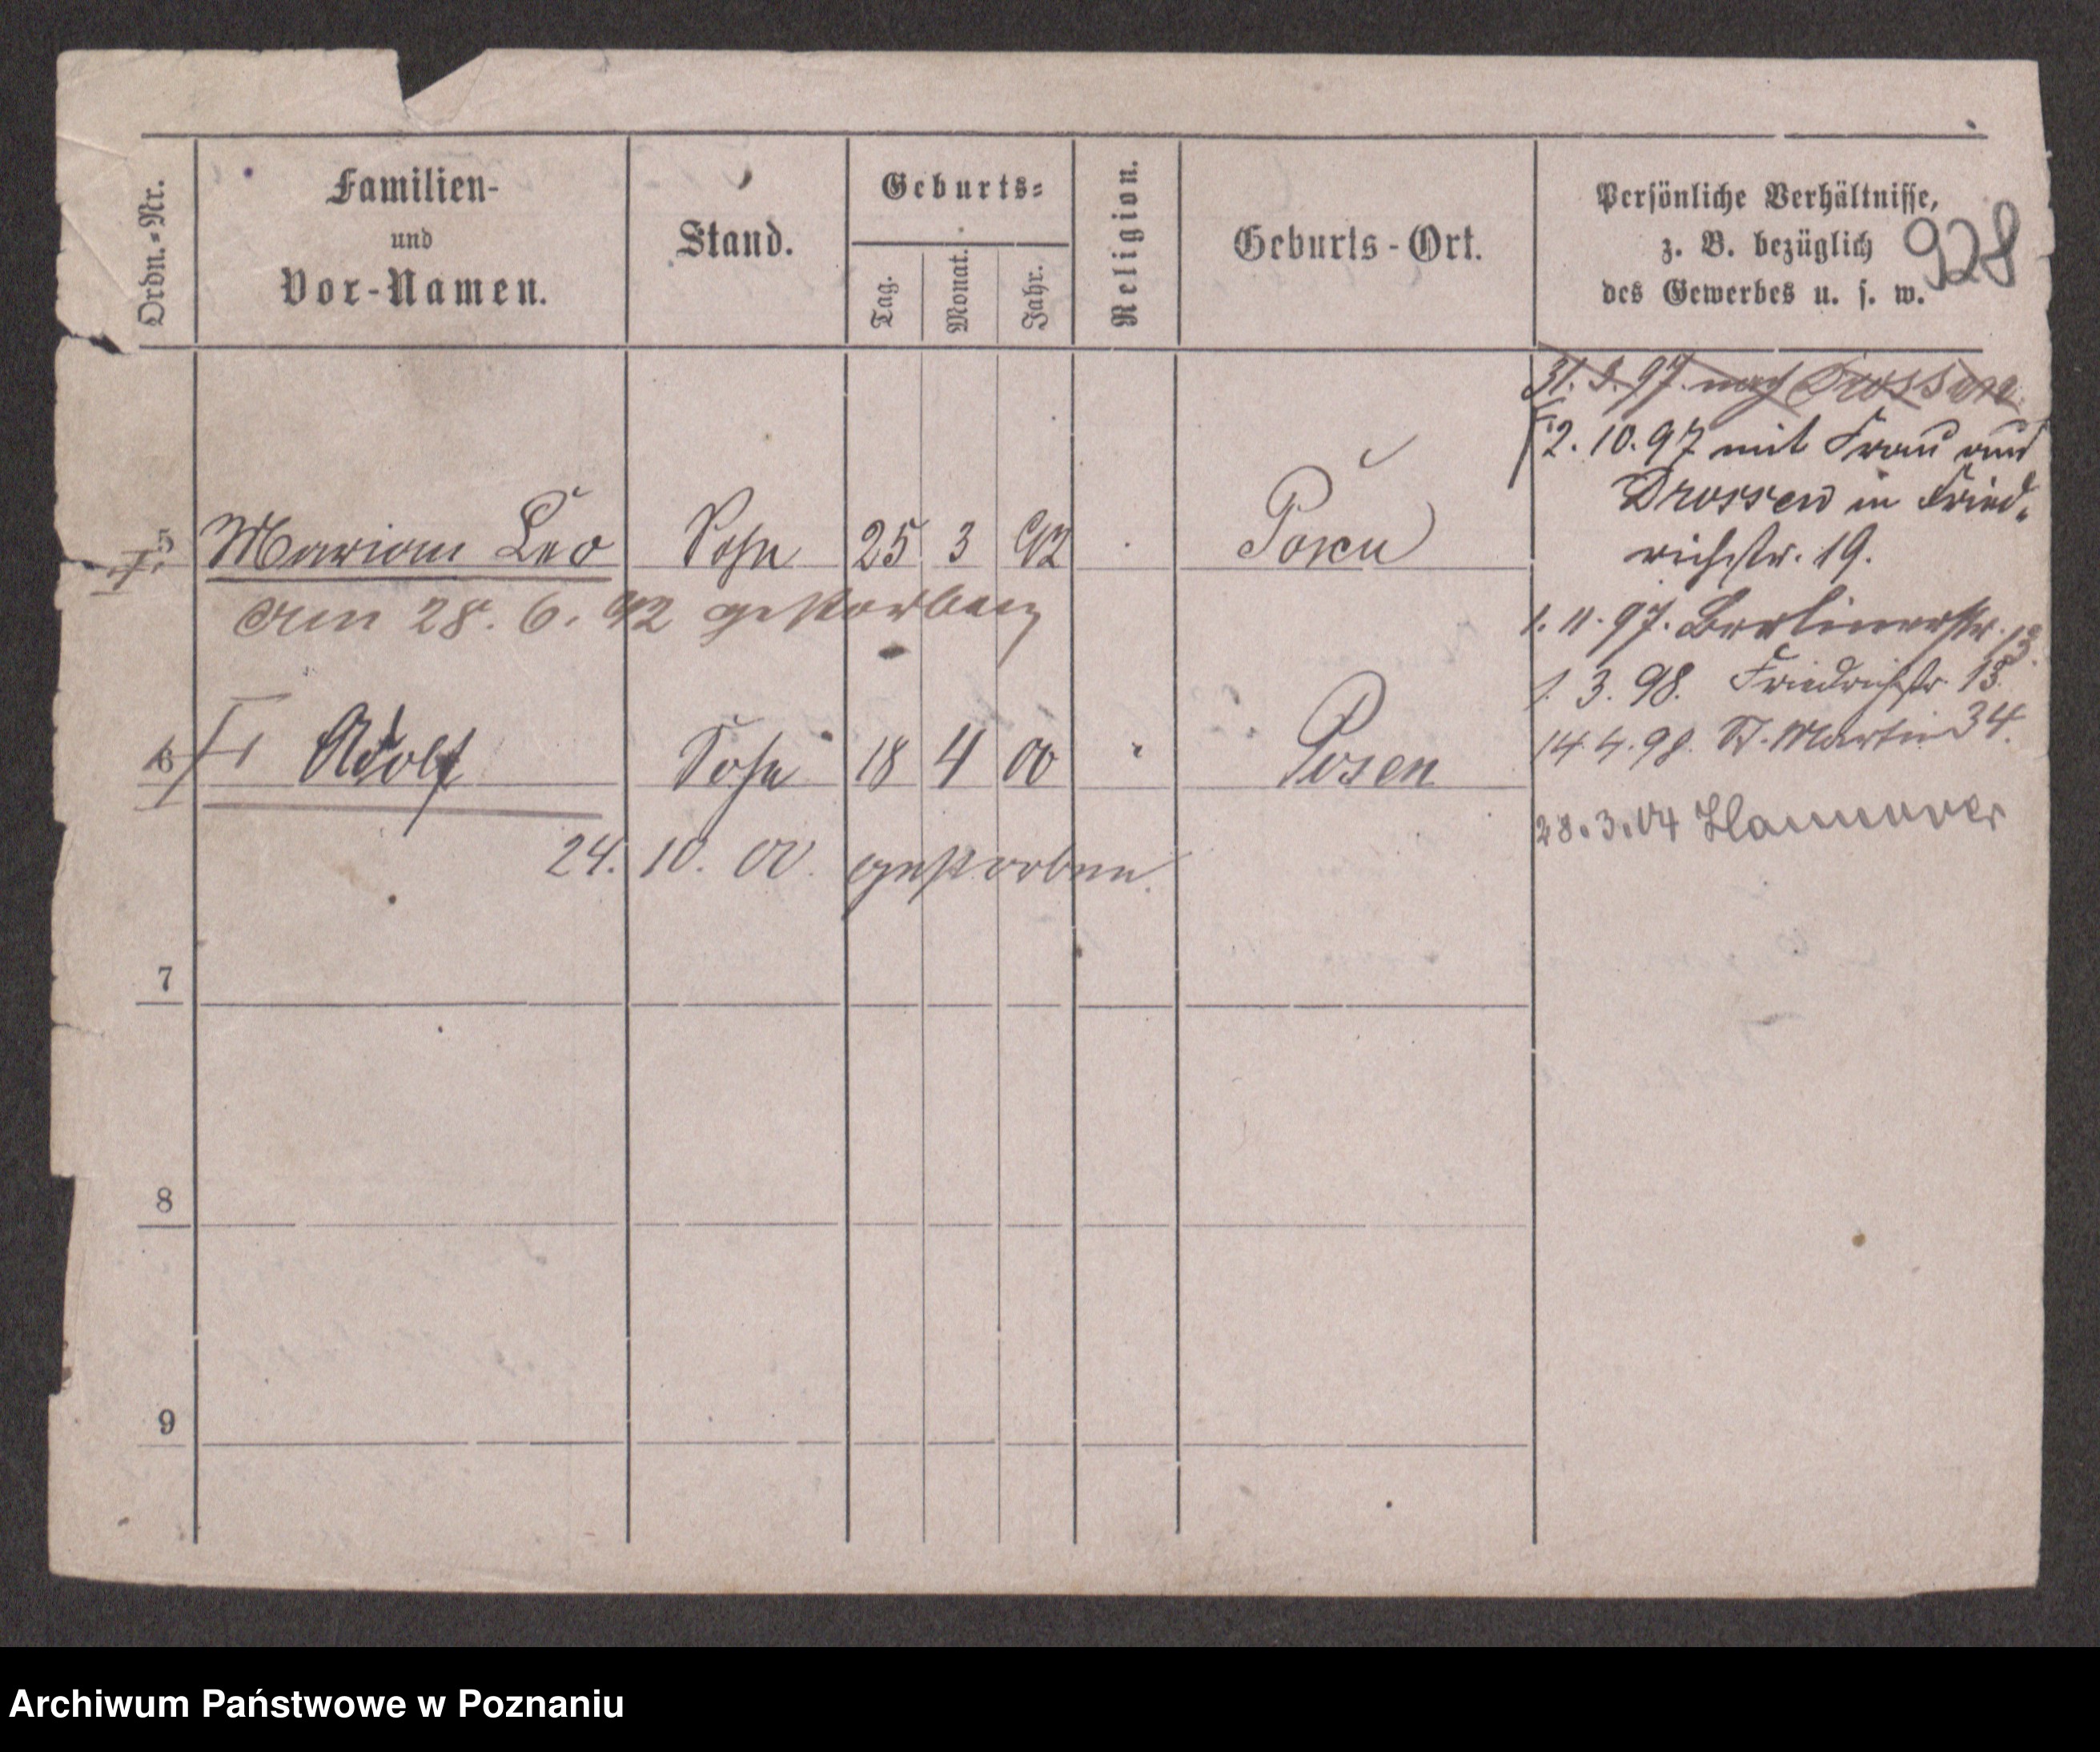 Ordn.-Nr.
Familien-
und
Vor-Namen.
Stand.
Geburts-
Tag.
Monat.
Jahr.
Religion.
Geburts-Ort.
Persönliche Verhältnisse,
z. B. bezüglich
des Gewerbes u. s. w.
928
31. 3. 97. nach Drossen
2. 10. 97 mit Frau aus
Drossen in Fried-
richstr. 19.
5 Marian Leo Sohn 25 3 92 Posen
am 28. 6. 92 gestorben
1. 11. 97. Berlinerstr. 13.
1. 3. 98. Friedrichstr. 13.
14. 4. 98. St. Martin 34.
6 Adolf Sohn 18 4 00 " Posen
28. 3. 04 Hannover
24. 10. 00. gestorben.
7
8
9
Archiwum Państwowe w Poznaniu